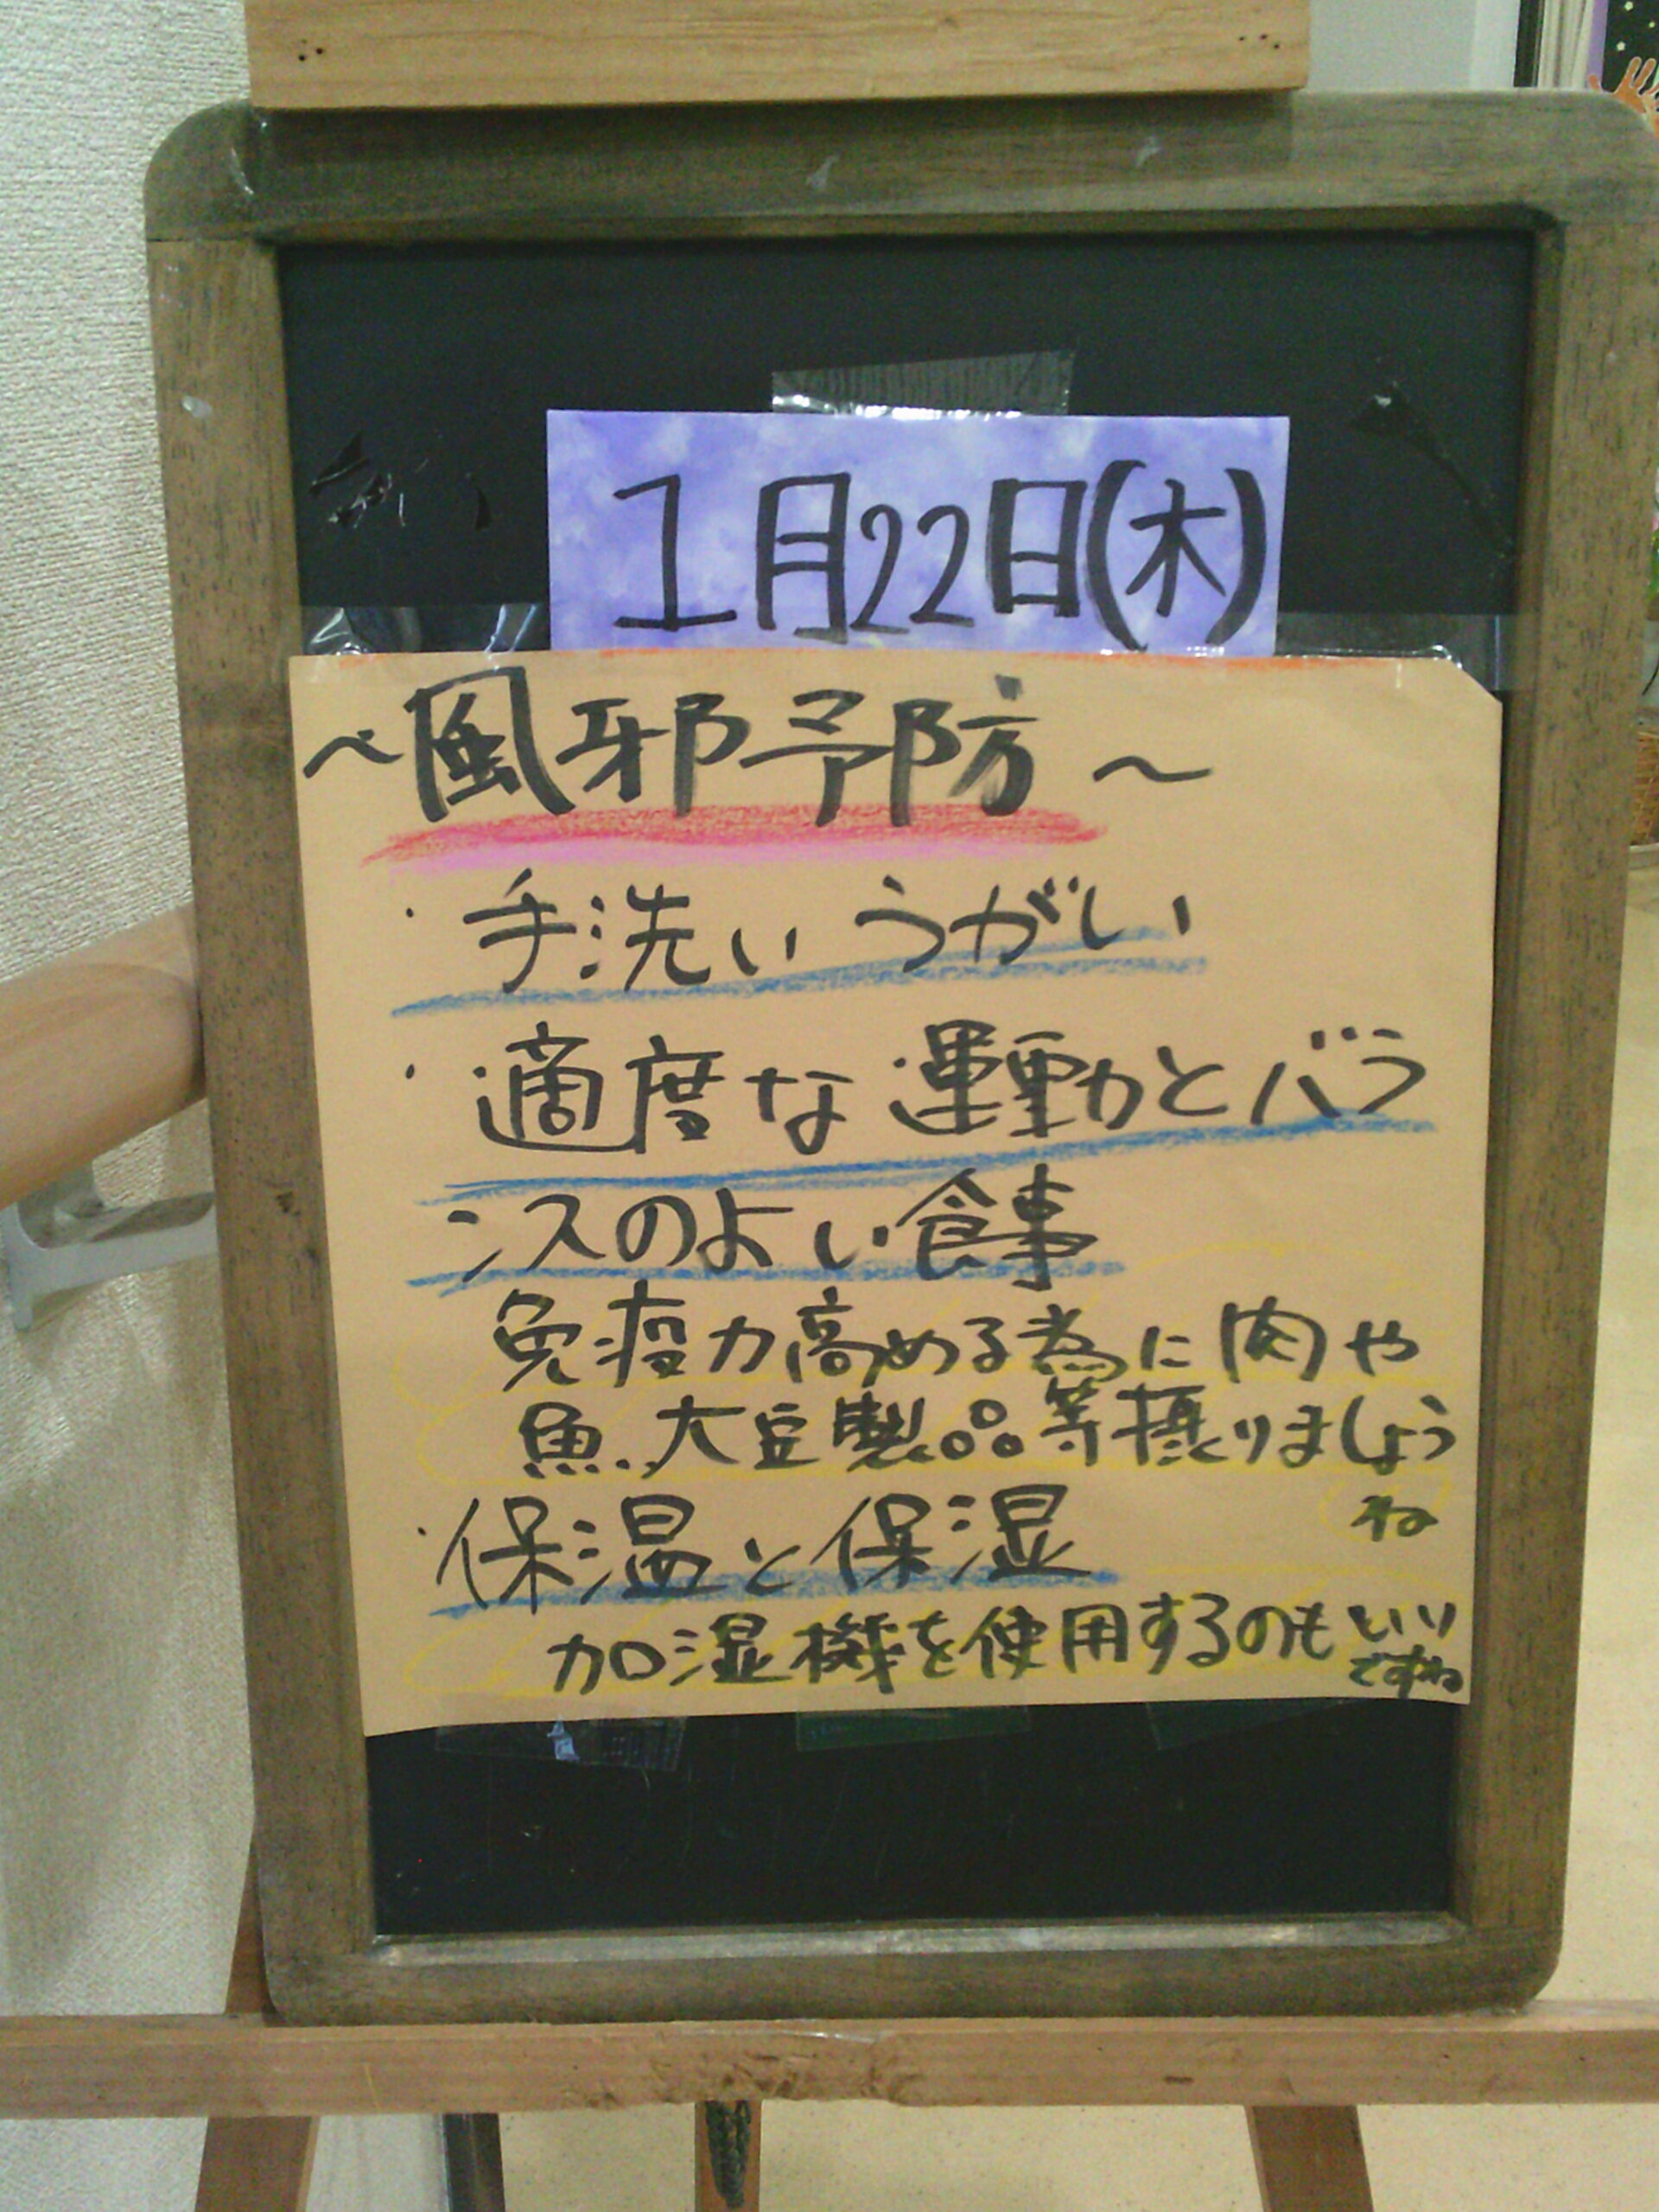 1月22日(木)
〜風邪予防〜
・手洗い うがい
・適度な運動とバラ
ンスのよい食事
免疫力高める為に肉や
魚、大豆製品等摂りましょう
ね
・保温と保湿
加湿機を使用するのもいい
ですね